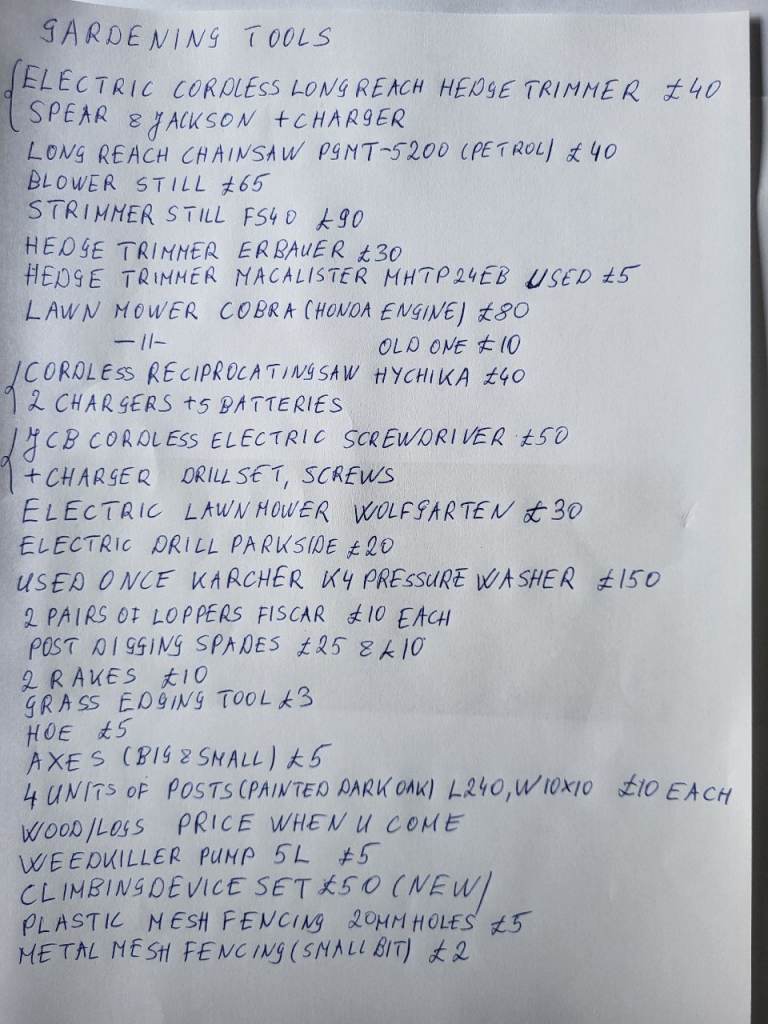 GARDENING TOOLS
ELECTRIC CORDLESS LONG REACH HEDGE TRIMMER £40
SPEAR & JACKSON + CHARGER
LONG REACH CHAINSAW PGMT-5200 (PETROL) £40
BLOWER STILL £65
STRIMMER STILL FS40 £90
HEDGE TRIMMER ERBAUER £30
HEDGE TRIMMER MACALISTER MHTP24EB USED £5
LAWN MOWER COBRA (HONDA ENGINE) £80
—11— OLD ONE £10
CORDLESS RECIPROCATING SAW HYCHIKA £40
2 CHARGERS +5 BATTERIES
JCB CORDLESS ELECTRIC SCREWDRIVER £50
+ CHARGER DRILL SET, SCREWS
ELECTRIC LAWN MOWER WOLFGARTEN £30
ELECTRIC DRILL PARKSIDE £20
USED ONCE KARCHER K4 PRESSURE WASHER £150
2 PAIRS OF LOPPERS FISCAR £10 EACH
POST DIGGING SPADES £25 & £10
2 RAKES £10
GRASS EDGING TOOL £3
HOE £5
AXES (BIG & SMALL) £5
4 UNITS OF POSTS (PAINTED DARK OAK) L240, W10X10 £10 EACH
WOOD/LOGS PRICE WHEN U COME
WEEDKILLER PUMP 5L £5
CLIMBING DEVICE SET £50 (NEW)
PLASTIC MESH FENCING 20MM HOLES £5
METAL MESH FENCING (SMALL BIT) £2